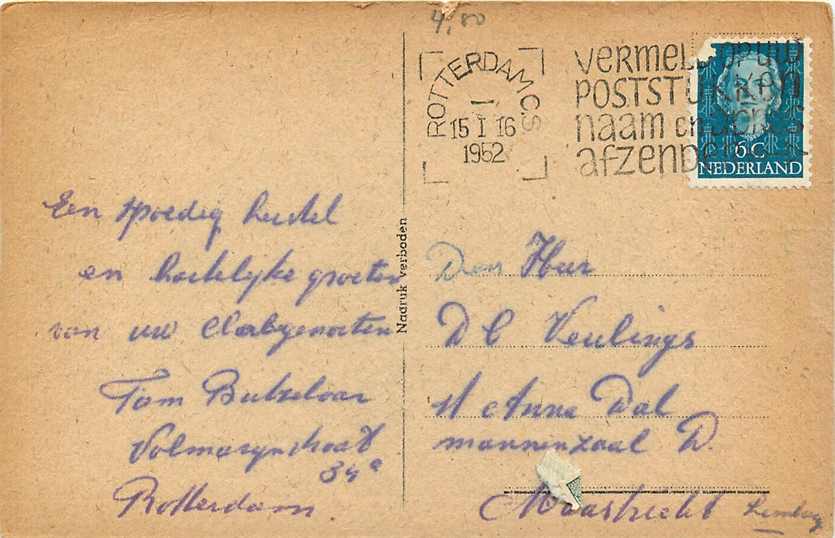 4,80
ROTTERDAM CS
15 I 16
1952
vermeld op uw
POSTSTUKKEN
naam en adres
afzender
6 C
NEDERLAND
Een spoedig herstel
en hartelijke groeten
van uw Clubgenooten
Tom
34a
Rotterdam
Nadruk verboden
Den Heer
D C Veulings
St Anna Dal
mannenzaal D.
Maastricht Limburg